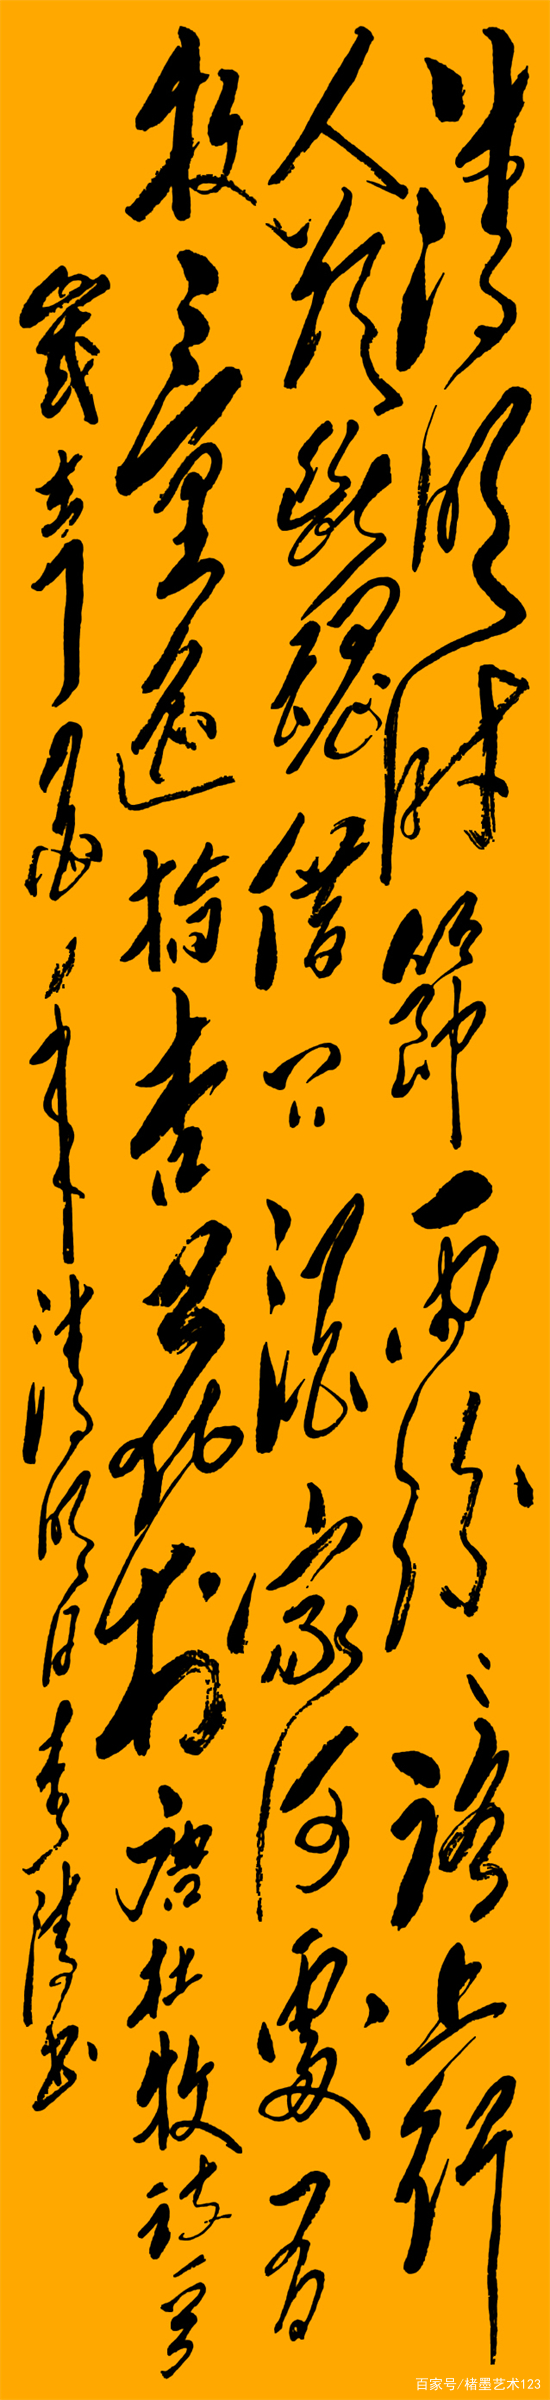 清明时節雨紛〻路上行
人欲斷魂借问酒家何處有
牧童遙指杏花村唐杜牧诗
歲在丁酉年清明日书
百家号/楮墨艺术123